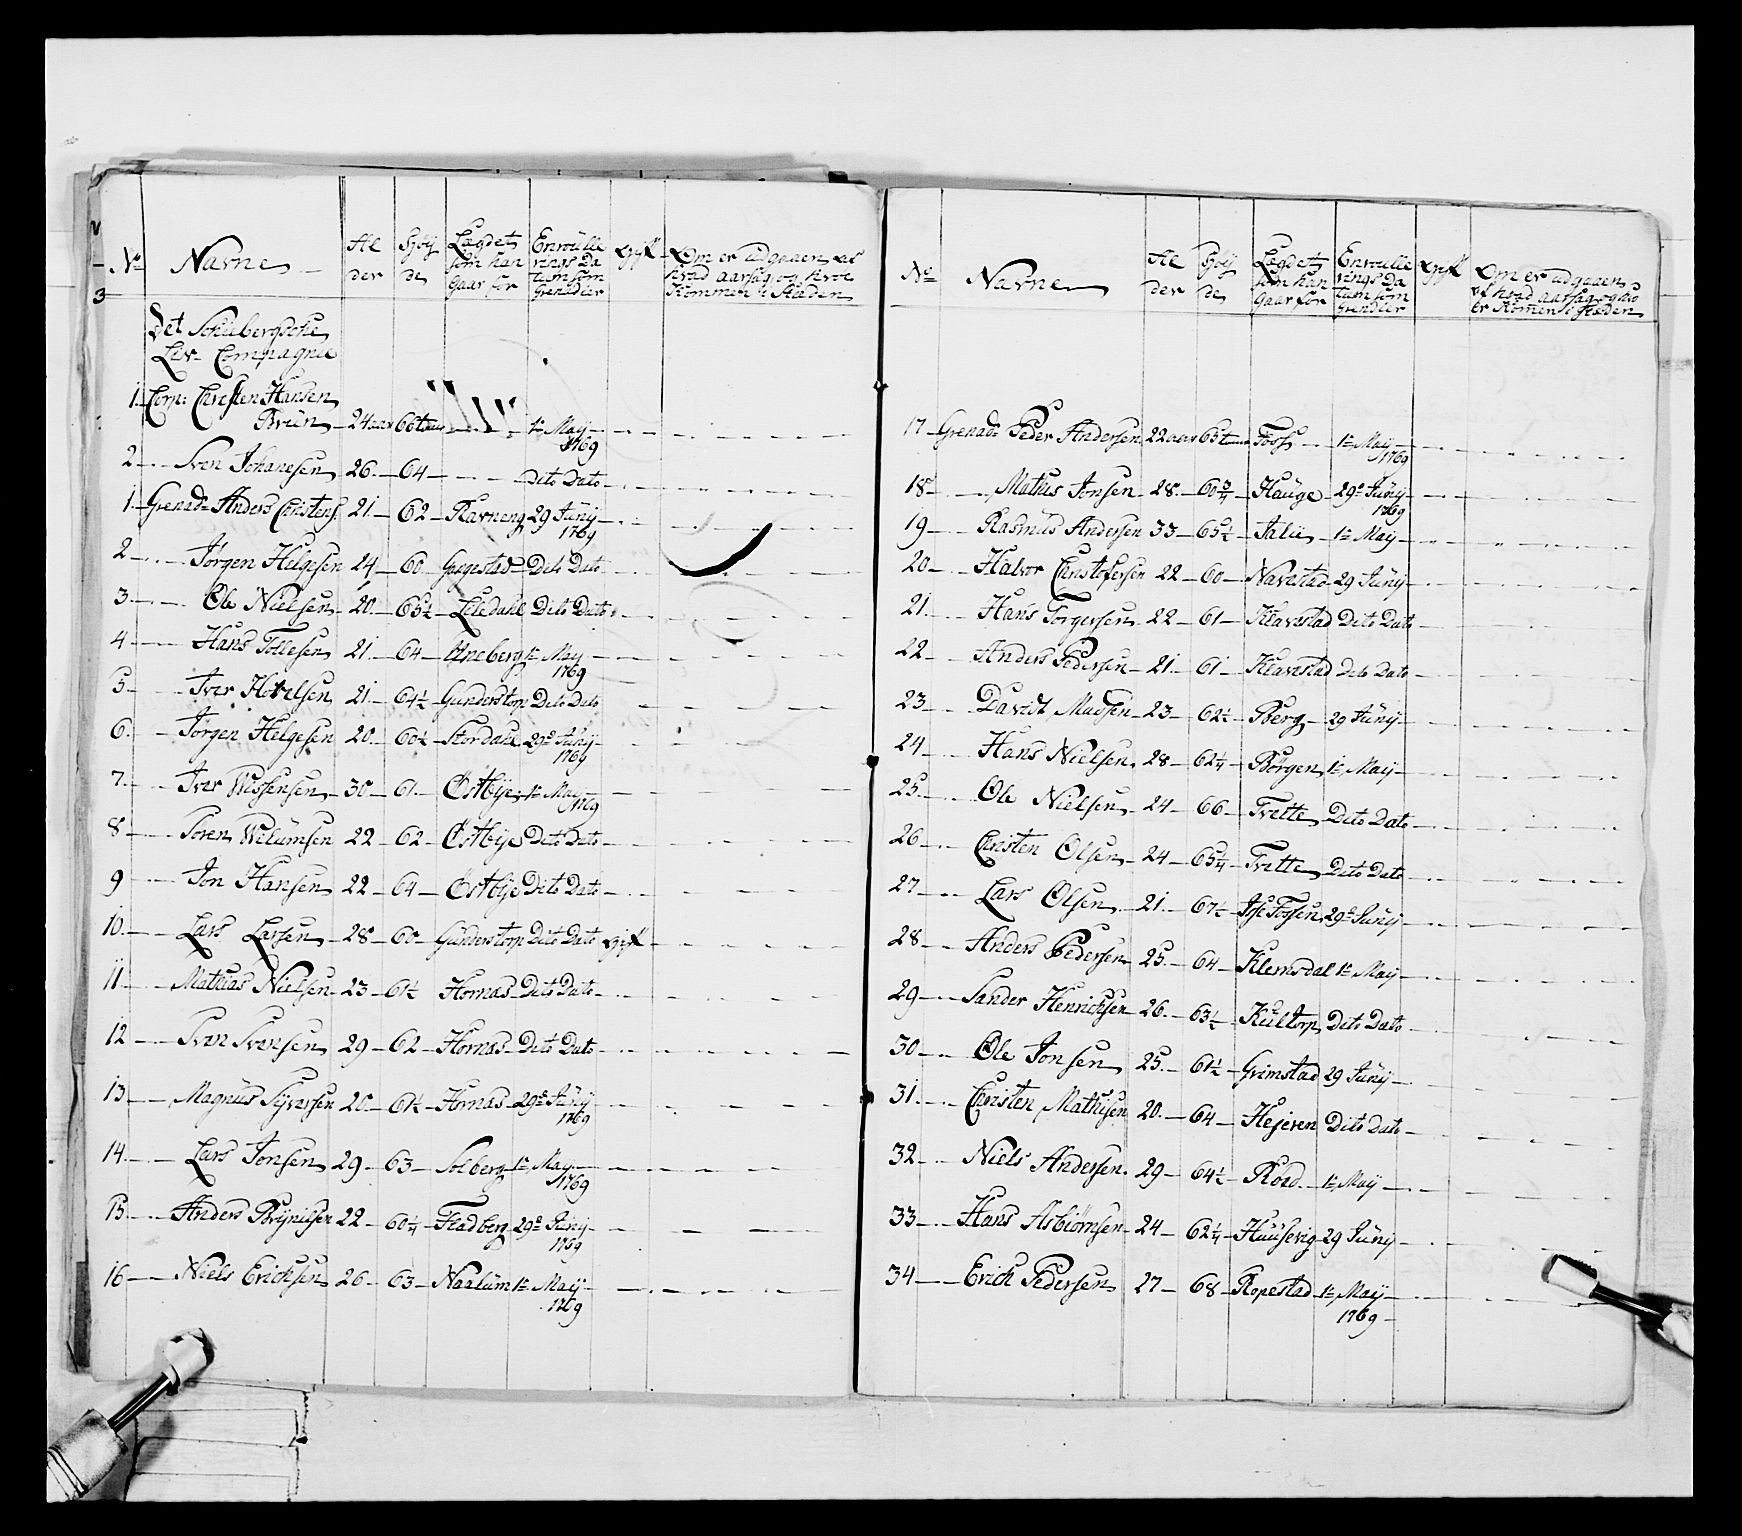 No Navne Al der Höij de Lægdet som han Gaar for Enroülle rings Da tum som Grenadier Gift Om er udgaaen af hvad aarsag og hvo Kommen i Steden
Det Schiebergsche
Liv Compagnie
1. Corp: Christen Hansen
Brün 24 aar 66 tom 1te Maij
1769
2 Sven Johanesen 26 64 Dito Dato
1 Grenad: Anders Christens. 21 62 Ravneng 29 Junij
1769
2 Jörgen Helgesen 24 60 Dito Dato
3 Ole Nielsen 20 65½ Liledahl Dito Dato
4 Hans Tollesen 21 64 Uneberg 1te Maij
1769
5 Iver 21 64½ Gunderstorp Dito Dato
6 Jörgen Helgesen 20 60½ Stordahl 29de Junij
1769
7 Iver 30 61 Östbije 1te Maij
1769
8 Sören Wilumsen 22 62 Östbije Dito Dato
9 Jon Hansen 22 64 Östbije Dito Dato
10 Lars Larsen 28 60 Gunderstorp Dito Dato gift
11 Mathias Nielsen 23 61½ Hornæs Dito Dato
12 Sven Svensen 29 62 Hornæs Dito Dato
13 Magnus Sijversen 20 61½ Hornæs 29de Junij
1769
14 Lars Jonsen 29 63 Solberg 1te Maij
1769
15 Anders Brijnilsen 22 60¼ Fladberg 29de Junij
1769
16 Niels Erichsen 26 63 Naalum 1te Maij
1769
No Navne Al der Höij de Lægdet som han Gaar for Enroülle rings Da tum som Grendier Gift Om er udgaaen af hvad aarsag og hvo er Komen i Steden
17 Grenad: Peder Andersen 22 aar 65 tom Foss 1te Maij
1769
18 Mathis Jonsen 28 60¾ Hauge 29de Junij
1769
19 Rasmus Andersen 33 65½ Jalu 1te Maij
20 Halvor Christofersen 22 60 Navestad 29 Junij
21 Hans Torgersen 22 61 Klavestad Dito Dato
22 Anders Pedersen 21 61 Klavestad Dito Dato
23 Davidt Madsen 23 62½ Berg 29 Junij
24 Hans Nielsen 28 62¼ Börgen 1te Maij
25 Ole Nielsen 24 66 Tvette Dito Dato
26 Christen Olsen 24 65¼ Tvette Dito Dato
27 Lars Olsen 21 67½ Ise Fossen 29de Junij
28 Anders Pedersen 25 64 Klemsdal 1te Maij
29 Sander Henrichsen 26 63½ Kultorp Dito Dato
30 Ole Jonsen 25 61½ Grimstad 29 Junij
31 Christen Mathisen 20 64 Hejeren Dito Dato
32 Niels Andersen 29 64½ Röad 1te Maij
33 Hans Asbiörnsen 24 62¼ Huusevig 29 Junij
34 Erich Pedersen 27 68 Ropestad 1te Maij
1769